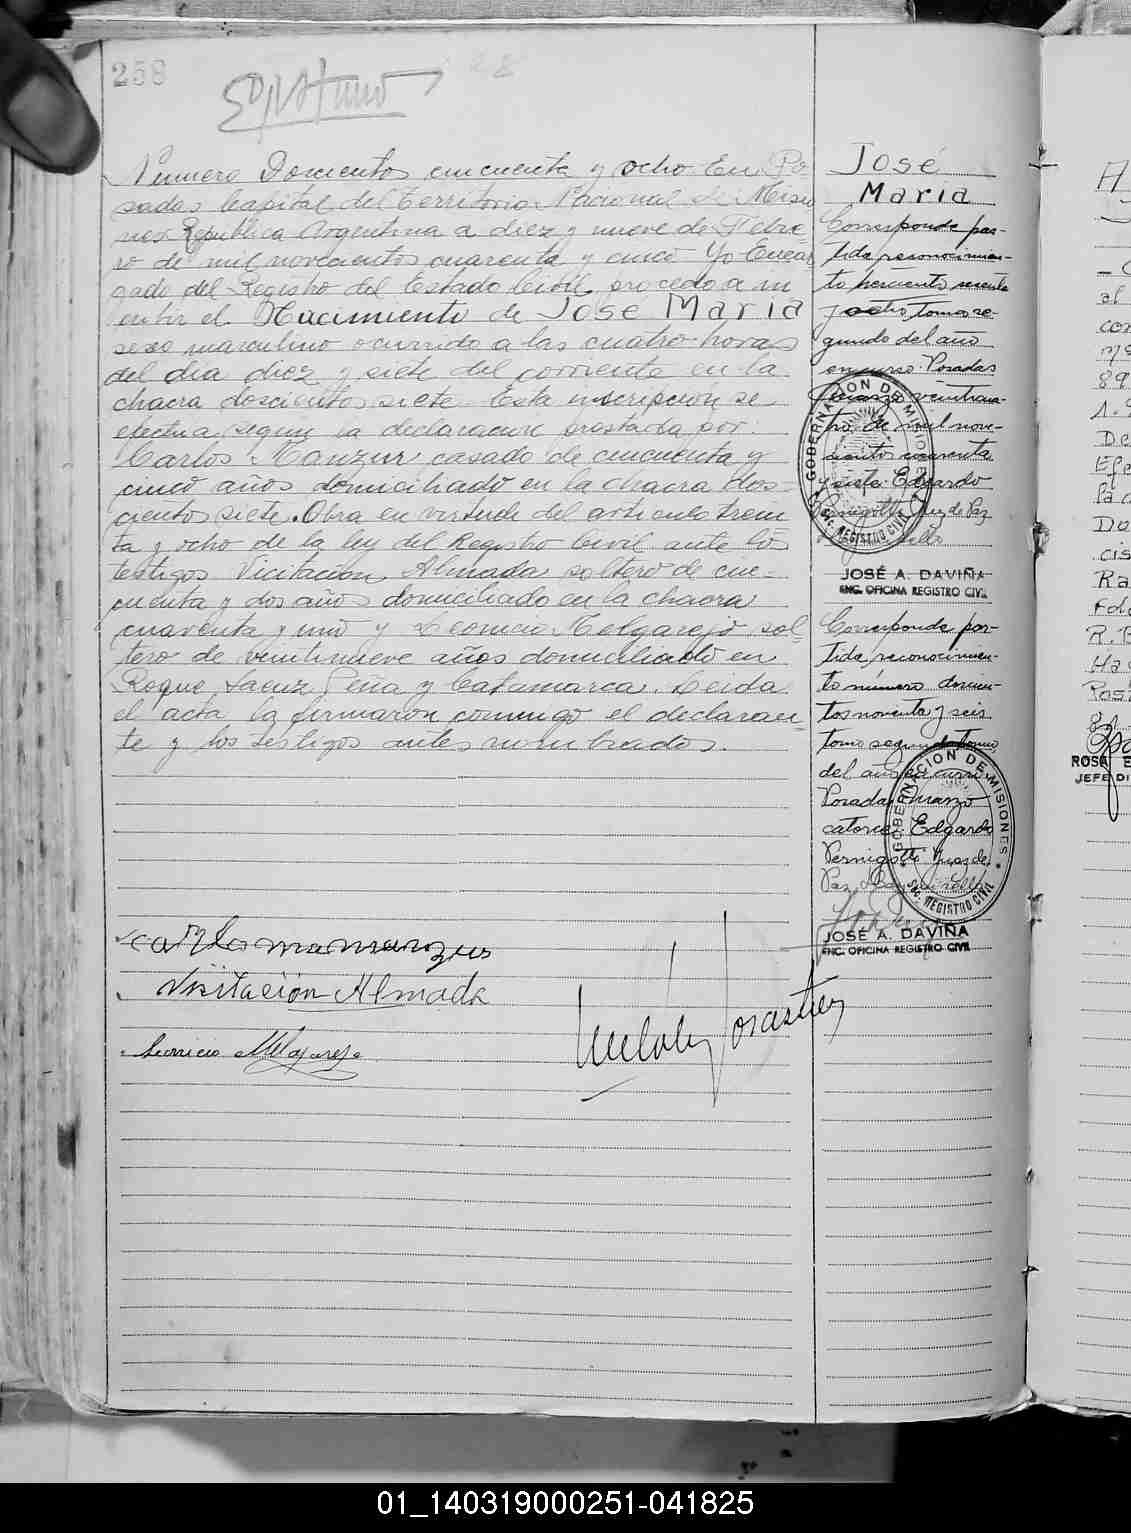 258
Número Doscientos cincuenta y ocho. En Po-
sadas Capital del Territorio Nacional de Misio
nes República Argentina a diez y nueve de Febre-
ro de mil novecientos cuarenta y cinco Yo Encar
gado del Registro del Estado Civil, procedo a in
cribir el Nacimiento de José María
sexo masculino ocurrido a las cuatro horas
del día diez y siete del corriente en la
chacra doscientos siete. Esta inscripción se
efectua segun la declaración prestada por
Carlos Manzur casado de cincuenta y
cinco años domiciliado en la chacra dos
cientos siete. Obra en virtud del articulo trein
ta y ocho de la ley del Registro Civil ante los
testigos Vicitación Almada soltero de cin-
cuenta y dos años domiciliado en la chacra
cuarenta y uno y Leoncio Melgarejo sol-
tero de veintinueve años domiciliado en
Roque Saenz Peña y Catamarca. Leida
el acta la firmaron conmigo el declaran
te y los testigos antes nombrados.
Visitación Almada
Leoncio Melgarejo
José
María
Corresponde par-
tida reconocimien-
to
y ocho tomo se-
gundo del año
en curso. Posadas
marzo veinticua-
tro de mil nove-
cientos cuarenta
y siete. Edgardo
Pernigotti Juez de Paz
GOBERNACION DE MISIONES
SEC. REGISTRO CIVIL
JOSÉ A. DAVIÑA
ENC. OFICINA REGISTRO CIVIL
Corresponde par-
tida reconocimien-
to número doscien-
tos noventa y seis
tomo segundo
del año en curso.
Posadas marzo
catorce. Edgardo
Pernigotti Juez de
Paz
GOBERNACION DE MISIONES
SEC. REGISTRO CIVIL
JOSÉ A. DAVIÑA
ENC. OFICINA REGISTRO CIVIL
al
con
89
De
Efe
La
Do
cis
Ra
Folo
R.
Ha
Pos
ROSA E
JEFE DI
01_140319000251-041825